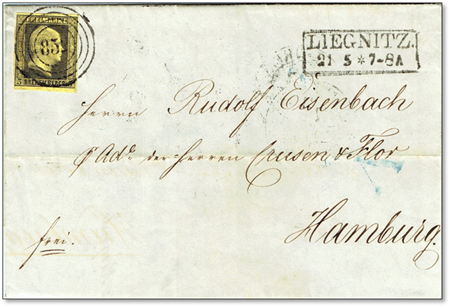 FREIMARKE
85.
LIEGNITZ.
21 5 * 7-8A
Herrn Rudolf Eisenbach
p Add. der Herren Crusen & Flor
Hamburg.
frei.